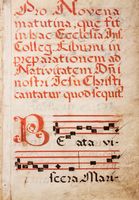 Pro Novena
matutina, que fit
in hac Ecclesia Inst.
Colleg. Liburni in
preparationem ad
Nativitatem Dni
nostri Jesu Christi
cantatur quod sequit.
Beata vi
scera Mari